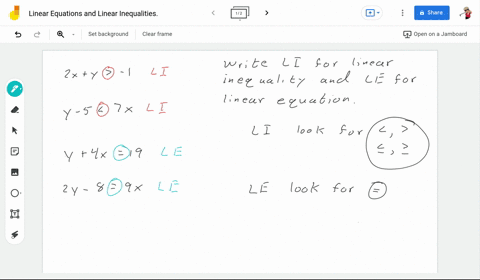 Linear Equations and Linear Inequalities.
1/2
Share
Set background
Clear frame
Open on a Jamboard
2x + y > -1 LI
y - 5 < 7x LI
y + 4x = 19 LE
2y - 8 = 9x LE
Write LI for linear
inequality and LE for
linear equation.
LI look for <, >
≤, ≥
LE look for =